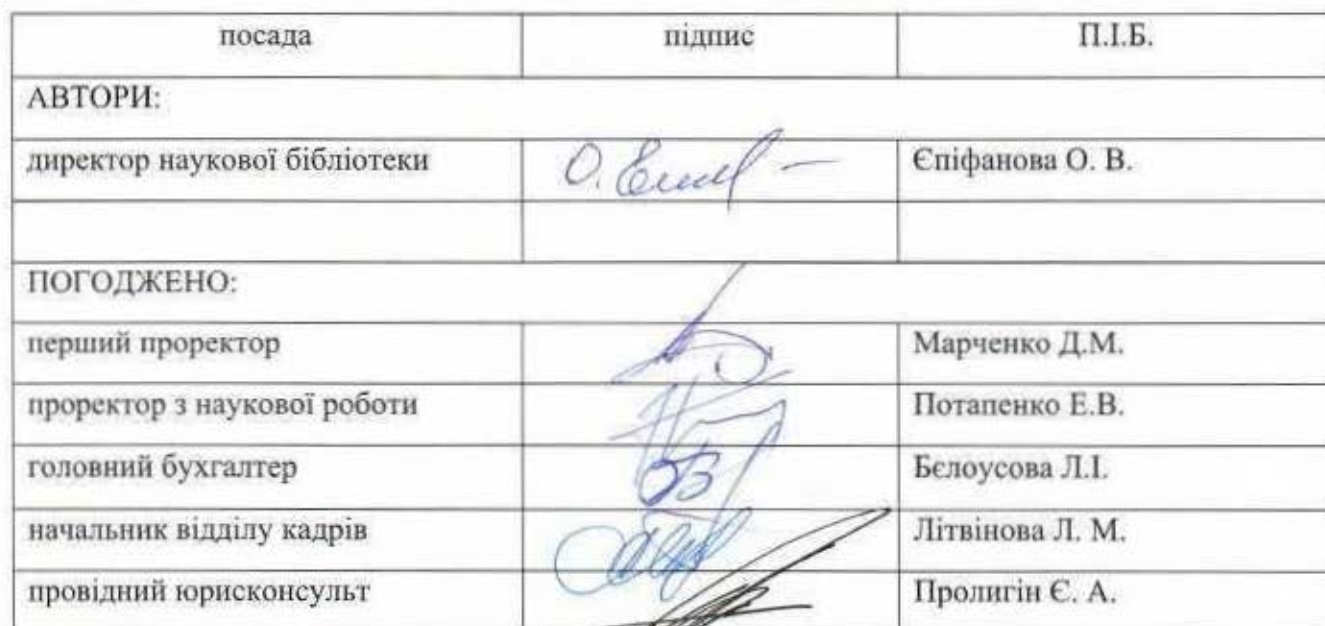 посада підпис П.І.Б.
АВТОРИ:
директор наукової бібліотеки Єпіфанова О. В.
ПОГОДЖЕНО:
перший проректор Марченко Д.М.
проректор з наукової роботи Потапенко Е.В.
головний бухгалтер Бєлоусова Л.І.
начальник відділу кадрів Літвінова Л. М.
провідний юрисконсульт Пролигін Є. А.